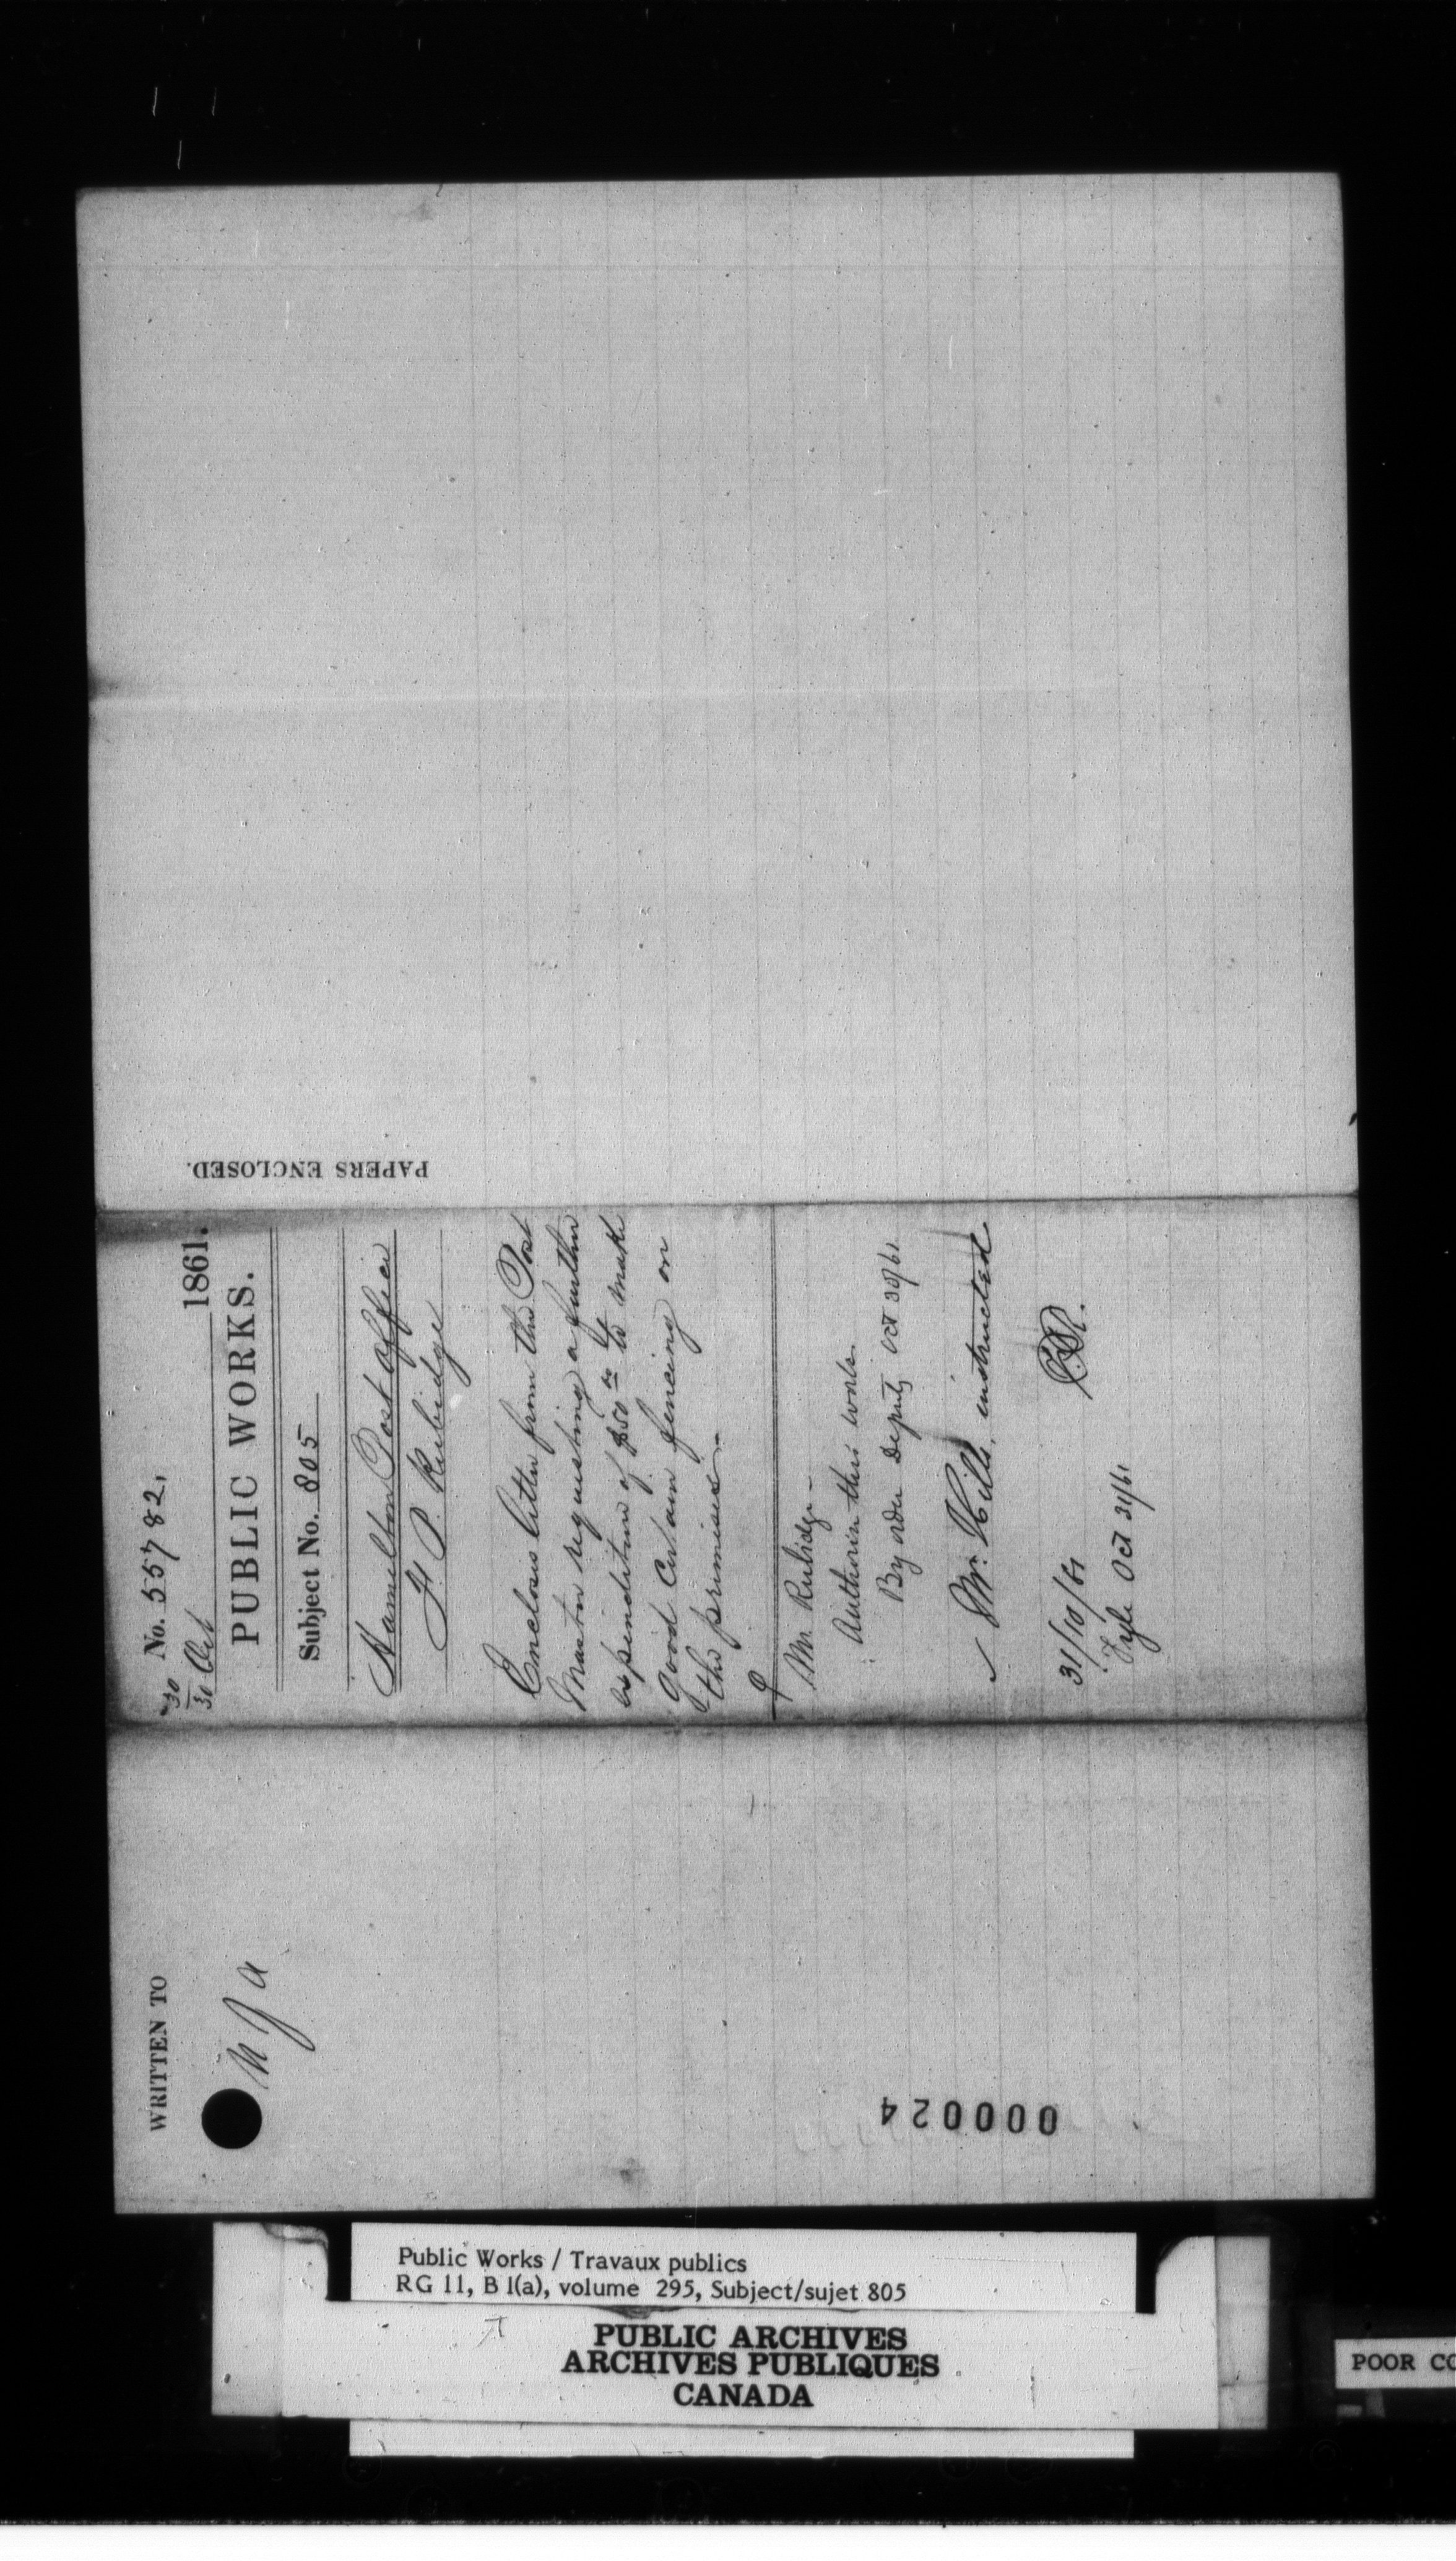 PAPERS ENCLOSED.
No. 55782,
30
30 Oct 1861.
PUBLIC WORKS.
Subject No. 805
Hamilton Post Office
F. P. Rubidge
Encloses letter from the Post
Master requesting a further
expenditure of $50 00 to make
good certain fencing on
the premises —
Mr. Rubidge —
Authorize this work.
By order Deputy Oct 30/61
Mr. Hills, instructed
31/10/61
Fyle Oct 31/61
WRITTEN TO
000024
Public Works / Travaux publics
RG 11, B 1(a), volume 295, Subject/sujet 805
PUBLIC ARCHIVES
ARCHIVES PUBLIQUES
CANADA
POOR CO